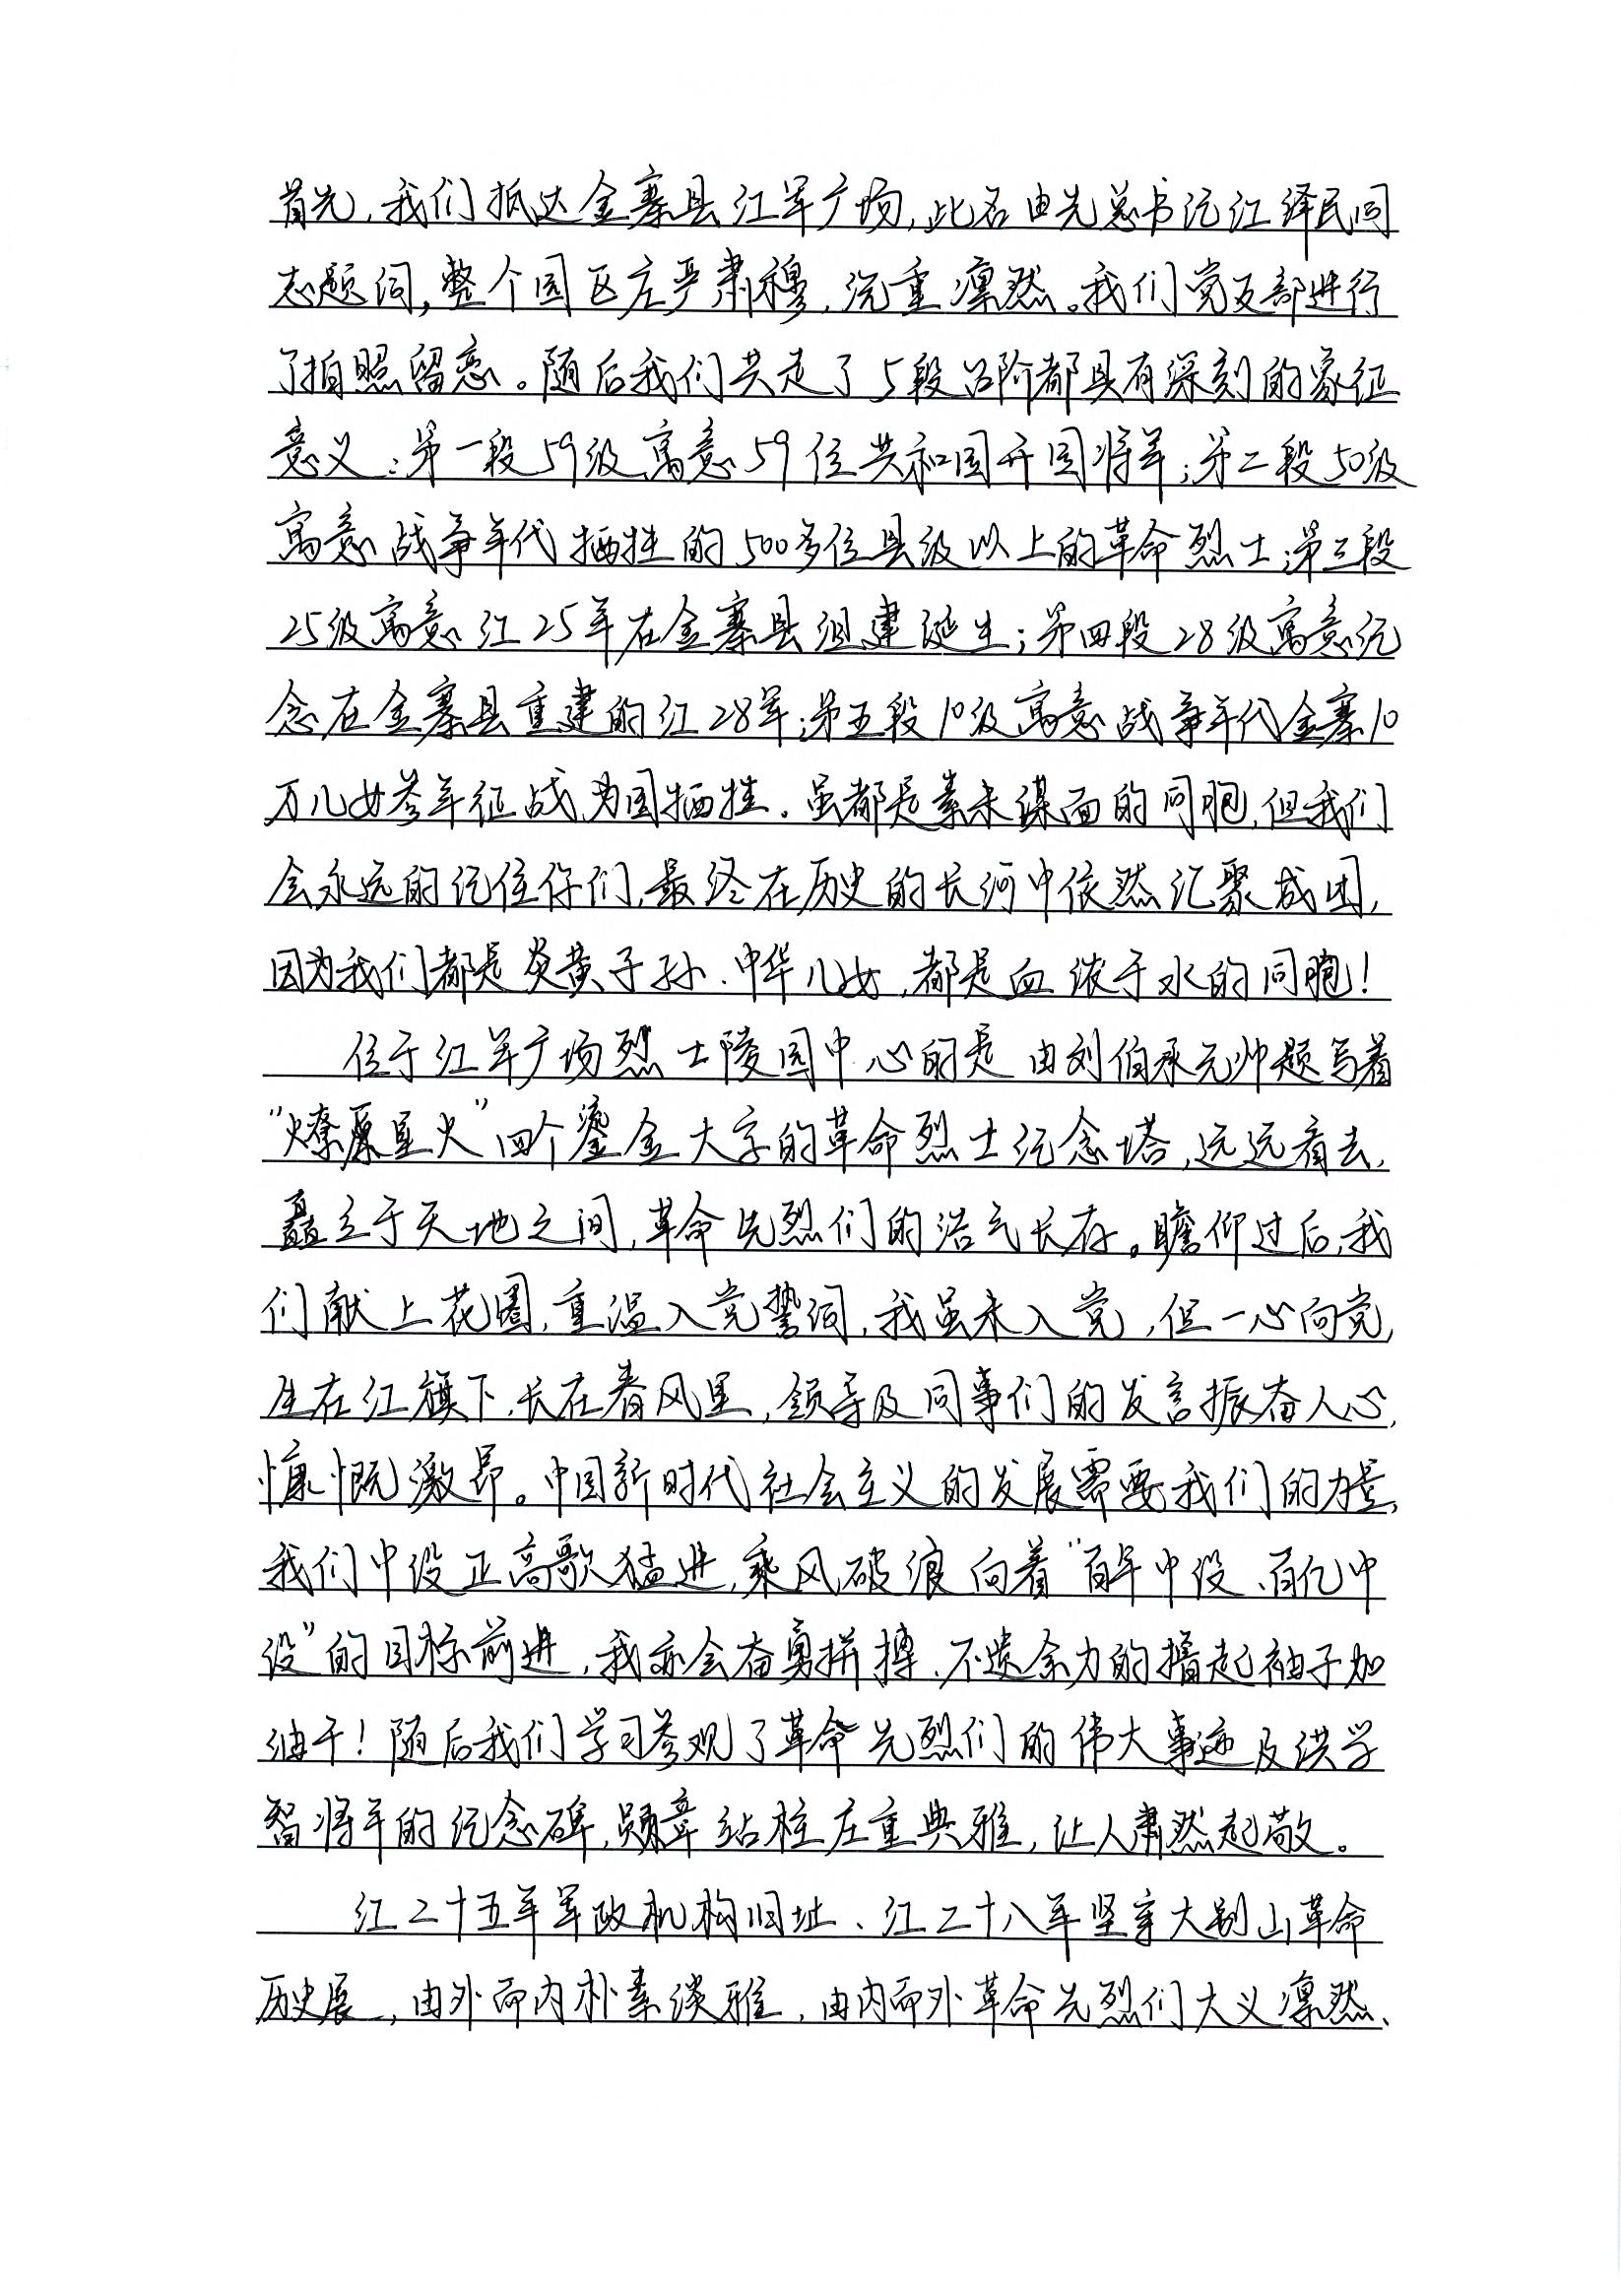 首先,我们抵达金寨县红军广场,此名由先总书记江泽民同
志题词,整个园区庄严肃穆,沉重凛然。我们党支部进行
了拍照留恋。随后我们共走了5段台阶都具有深刻的象征
意义:第一段59级寓意59位共和国开国将军;第二段50级
寓意战争年代牺牲的500多位县级以上的革命烈士;第三段
25级寓意红25军在金寨县组建诞生;第四段28级寓意纪
念在金寨县重建的红28军;第五段10级寓意战争年代金寨10
万儿女参军征战,为国牺牲。虽都是素未谋面的同胞,但我们
会永远的记住你们,最终在历史的长河中依然汇聚成团,
因为我们都是炎黄子孙、中华儿女,都是血浓于水的同胞!
位于红军广场烈士陵园中心的是由刘伯承元帅题写着
“燎原星火”四个鎏金大字的革命烈士纪念塔,远远看去,
矗立于天地之间,革命先烈们的浩气长存。瞻仰过后,我
们献上花圈,重温入党誓词,我虽未入党,但一心向党,
生在红旗下,长在春风里,领导及同事们的发言振奋人心,
慷慨激昂。中国新时代社会主义的发展需要我们的力量,
我们中设正高歌猛进,乘风破浪向着“百年中设、百亿中
设”的目标前进,我亦会奋勇拼搏、不遗余力的撸起袖子加
油干!随后我们学习参观了革命先烈们的伟大事迹及洪学
智将军的纪念碑,勋章站柱庄重典雅,让人肃然起敬。
红二十五军军政机构旧址、红二十八军坚守大别山革命
历史展,由外而内朴素淡雅,由内而外革命先烈们大义凛然、